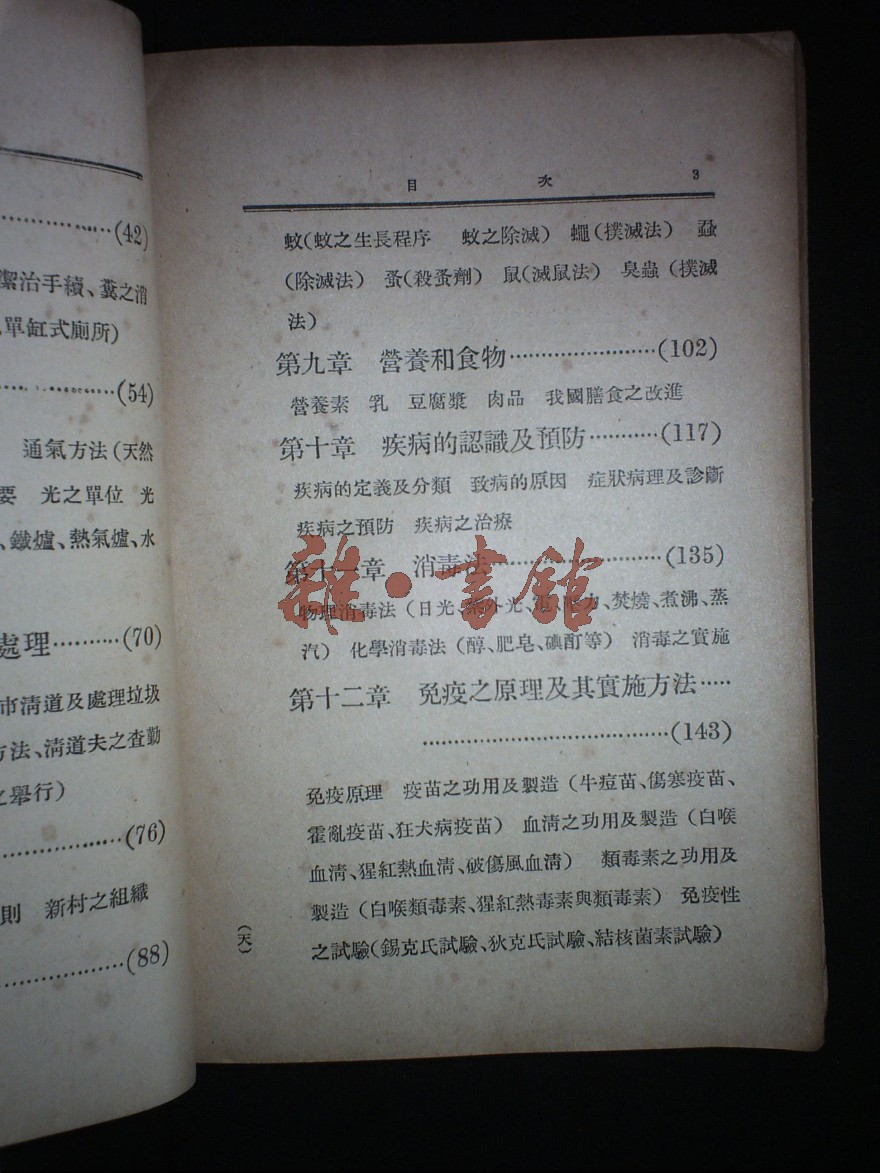 (42)
潔治手續、糞之消
單缸式廁所)
(54)
通氣方法(天然
要 光之單位 光
、鐵爐、熱氣爐、水
處理(70)
市清道及處理垃圾
方法、清道夫之查勤
之舉行)
(76)
則 新村之組織
(88)
目次 3
蚊(蚊之生長程序 蚊之除滅) 蠅(撲滅法) 蝨
(除滅法) 蚤(殺蚤劑) 鼠(滅鼠法) 臭蟲(撲滅
法)
第九章 營養和食物(102)
營養素 乳 豆腐漿 肉品 我國膳食之改進
第十章 疾病的認識及預防(117)
疾病的定義及分類 致病的原因 症狀病理及診斷
疾病之預防 疾病之治療
第十一章 消毒法(135)
物理消毒法(日光、紫外光、電、壓力、焚燒、煮沸、蒸
汽) 化學消毒法(醇、肥皂、碘酊等) 消毒之實施
第十二章 免疫之原理及其實施方法
(143)
免疫原理 疫苗之功用及製造(牛痘苗、傷寒疫苗、
霍亂疫苗、狂犬病疫苗) 血清之功用及製造(白喉
血清、猩紅熱血清、破傷風血清) 類毒素之功用及
製造(白喉類毒素、猩紅熱毒素與類毒素) 免疫性
之試驗(錫克氏試驗、狄克氏試驗、結核菌素試驗)
(天)
雜·書館